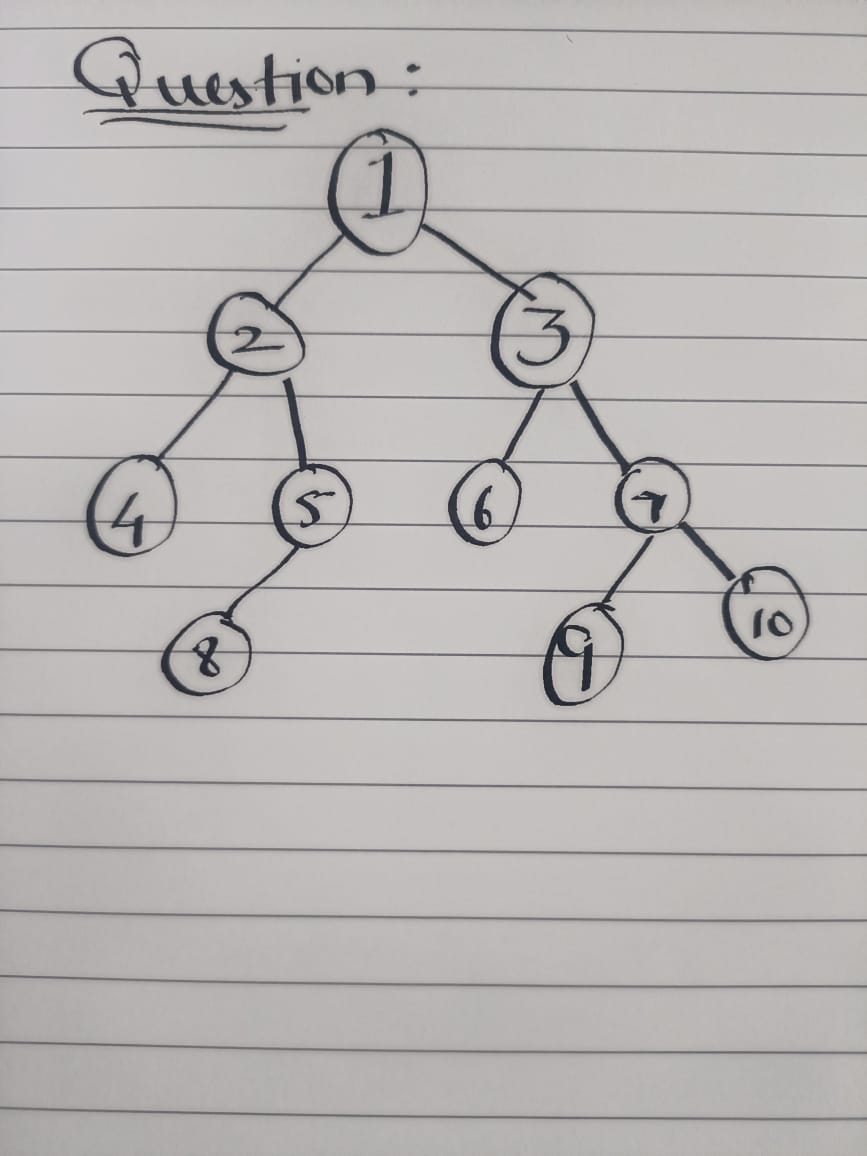 Question :
1
2 3
4 5 6 7
8 9 10